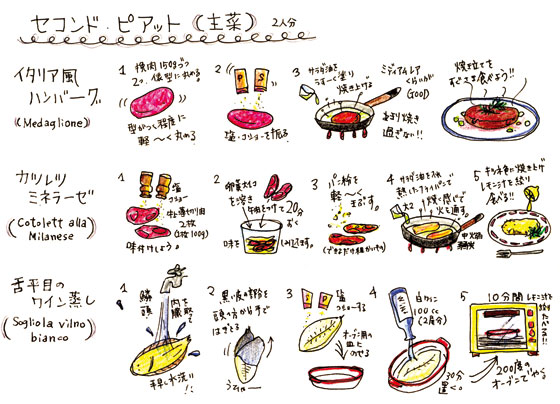 セコンド・ピアット(主菜) 2人分
イタリア風
ハンバーグ
(Medaglione)
1 挽肉150gづつ
2つ、俵型に丸める。
型がつく程度に
軽〜く丸める
2
塩・コショーを振る
3 サラダ油を
うすーく塗り
焼き上げる
ミディアムレア
くらいが
(GOOD)
あまり焼き
過ぎない!!
焼き立てを
すぐさま食べよう!!
カツレツ
ミネラーゼ
(Cotolett alla
Milanese)
1
塩
コショー
2枚
(1枚100g)
味付けしよう。
2
を溶き
肉をつけて20分
おく
味を
しみ込ます。
3 パン粉を
軽〜く
まぶす。
4 サラダ油を
熱したフライパンで
火を通す。
中火
5 キツネ色に焼き上げ
レモン汁を絞り
食べる!!
舌平目の
ワイン蒸し
(Sogliola vilno
bianco)
1
頭
内臓
手早く水洗い!!
2
黒い皮の部分を
頭の方から手で
はぎとる
3
塩
コショーする
オーブン用の
皿に
のせる
4
白ワイン
100cc
(2人分)
30分
置く。
5
10分間
レモン汁を
食べる!!
200度の
オーブンでやく。